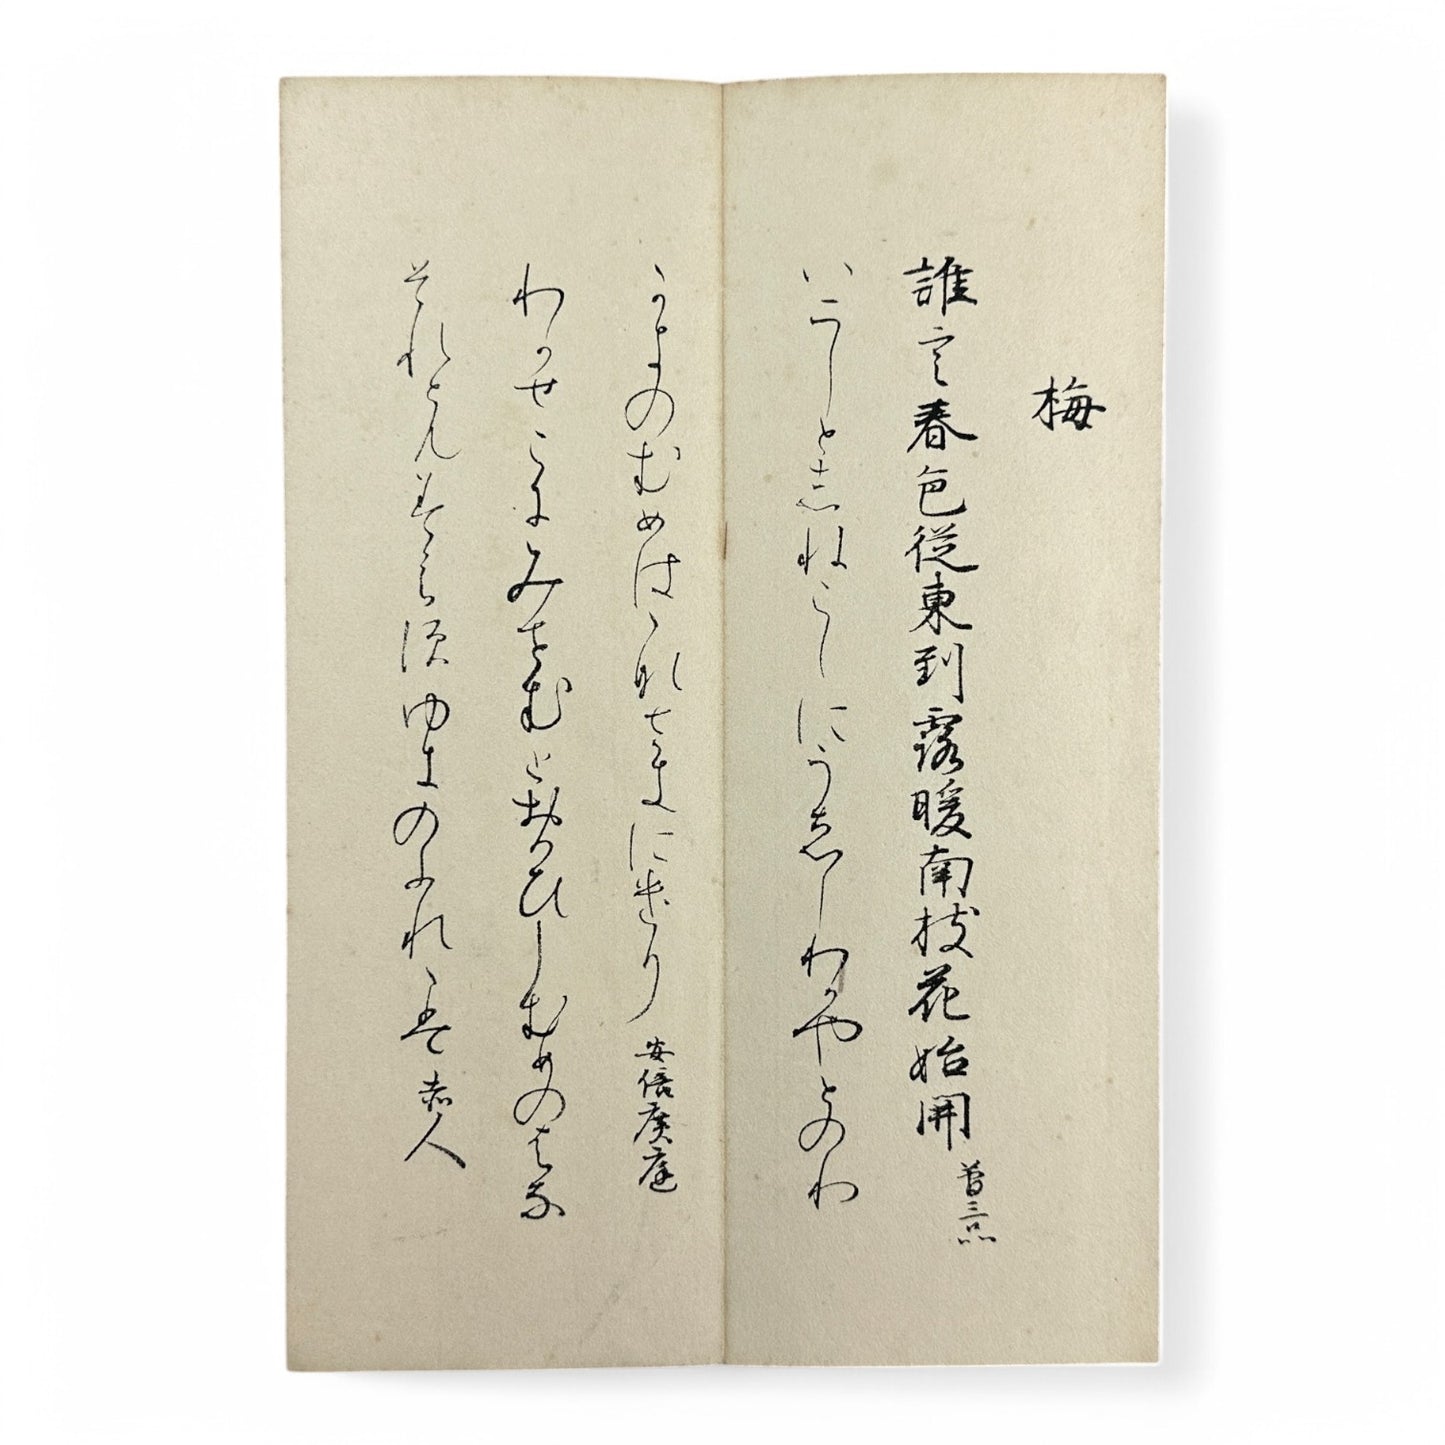 梅
誰言春色従東到露暖南枝花始開 菅三品
いにしとしねこしにうゑしわかやとのわ
かきのむめはゝなさきにけり 安倍廣庭
わかせこにみせむとおもひしむめのはな
それともみえすゆきのふれゝは 赤人